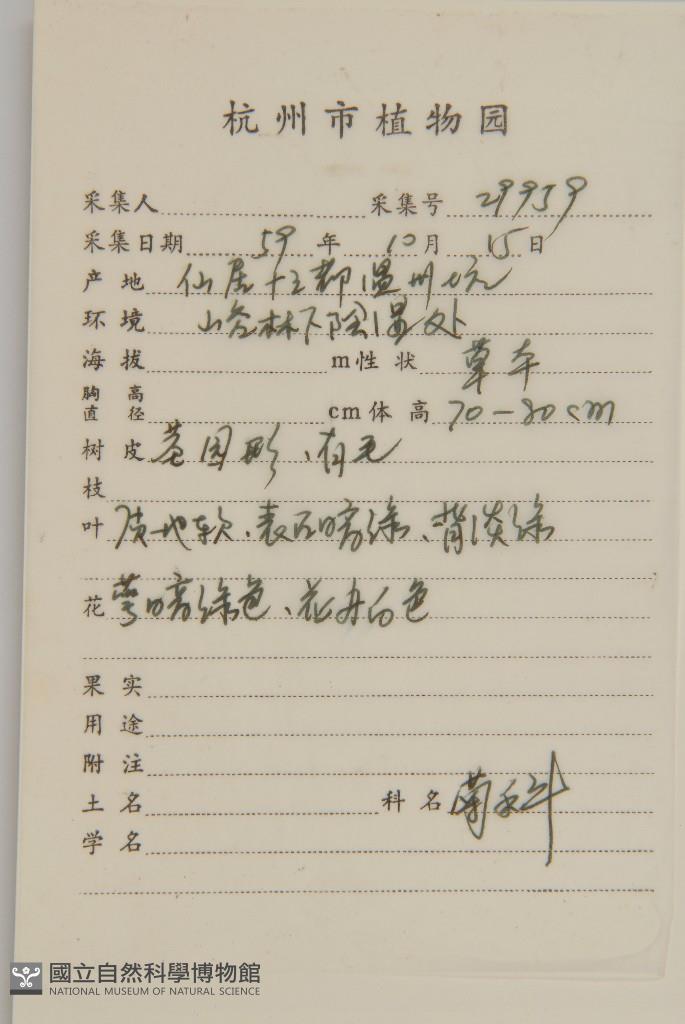 杭州市植物园
采集人 采集号 29959
采集日期 59 年 10 月 15 日
产地 仙居十三都温州坑
环境 山谷林下阴湿处
海拔 m 性状 草本
胸高直径 cm 体高 70-80cm
树皮 茎圆形、有毛
枝
叶 质地软、表面暗绿、背淡绿
花 萼暗绿色、花冉白色
果实
用途
附注
土名 科名 菊科
学名
國立自然科學博物館
NATIONAL MUSEUM OF NATURAL SCIENCE